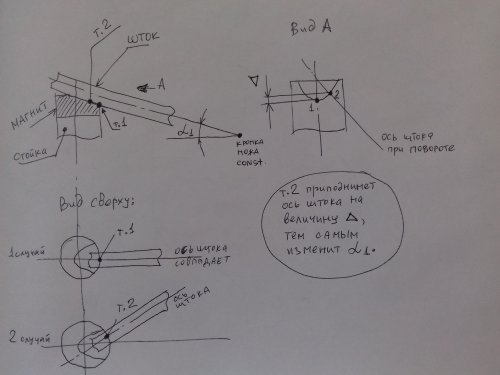 т.2
ШТОК
А
МАГНИТ
т.1
СТОЙКА
α1
КРОМКА
НОЖА
const.
Вид А
Δ
1.
2
ОСЬ ШТОКА
ПРИ ПОВОРОТЕ
Вид сверху:
т.1
1 случай
ОСЬ ШТОКА
СОВПАДАЕТ
т.2
ОСЬ
ШТОКА
2 случай
т.2 приподнимет
ось штока на
величину Δ,
тем самым
изменит α1.